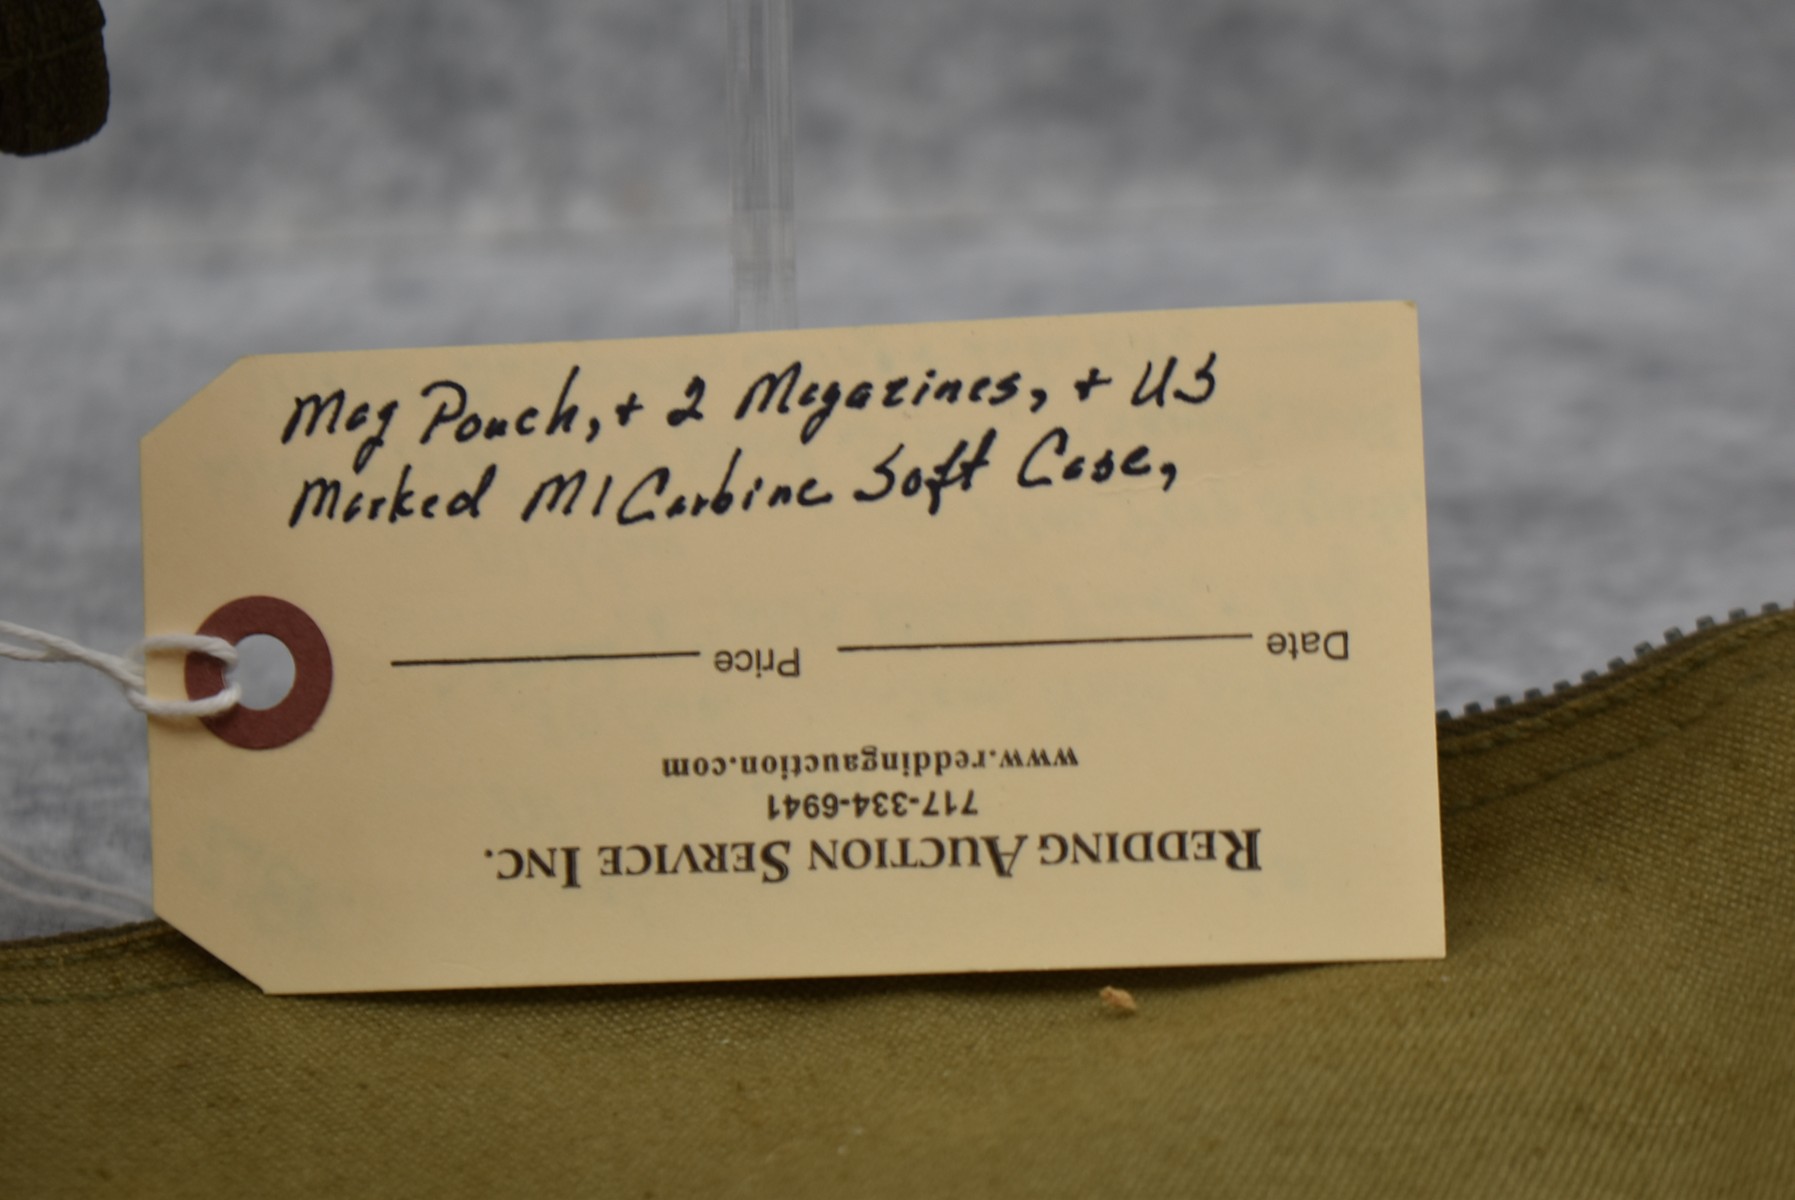 Mag Pouch, + 2 Magazines, + US
Marked M1 Carbine Soft Case,
Redding Auction Service Inc.
717-334-6941
www.reddingauction.com
Date Price